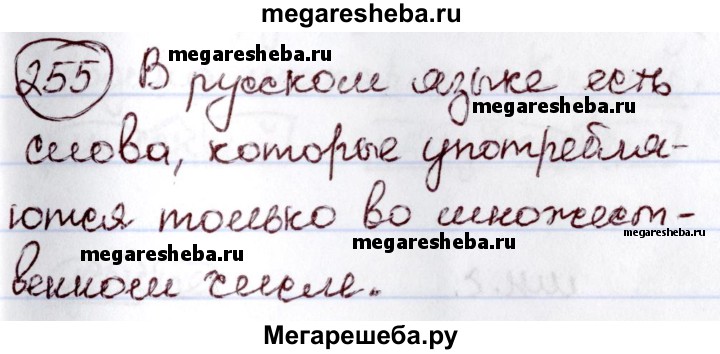 megaresheba.ru
255 В русском языке есть
megaresheba.ru
megaresheba.ru
слова, которые употребля-
ются только во множест-
megaresheba.ru
megaresheba.ru
megaresheba.ru
венном числе.
Мегарешеба.ру